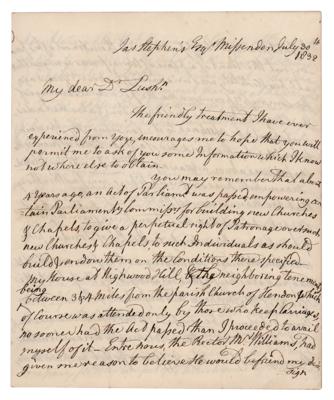 Jas Stephen's Esqr Missenden July 30th
1832
My dear Dr Lushn
The friendly treatment I have ever
experienced from you, encourages me to hope that you will
permit me to ask of you some Information which I know
not where else to obtain.
You may remember that about
4 Years ago, an Act of Parliamt was passed empowering cer
tain Parliamenty Commissrs for building new Churches
& Chapels, to give a perpetual right of Patronage over such
new Churches & Chapels, to such Individuals as should
build & endow them on the Conditions there specified
My House at Highwood Hill, & the neighboring tenements
being between 3 & 4 Miles from the parish Church of Hendon (which
of Course was attended only by those who keep Carriages,
no sooner had the Act passed than I proceeded to avail
myself of it — Entre nous, the Rector Mr Williams, had
given me reason to believe He would befriend my de
sign